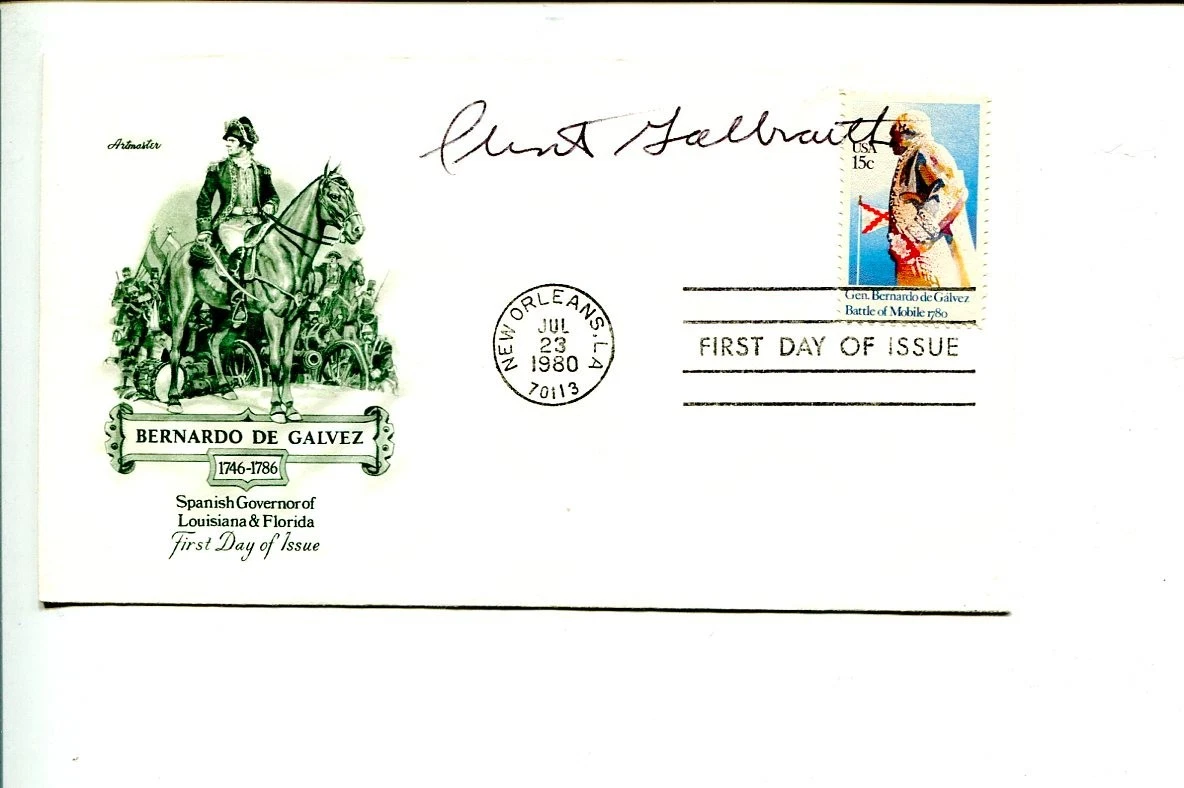 Artmaster
Clint Galbraith
USA
15c
Gen. Bernardo de Gálvez
Battle of Mobile 1780
NEW ORLEANS, LA
JUL
23
1980
70113
FIRST DAY OF ISSUE
BERNARDO DE GALVEZ
1746-1786
Spanish Governor of
Louisiana & Florida
First Day of Issue